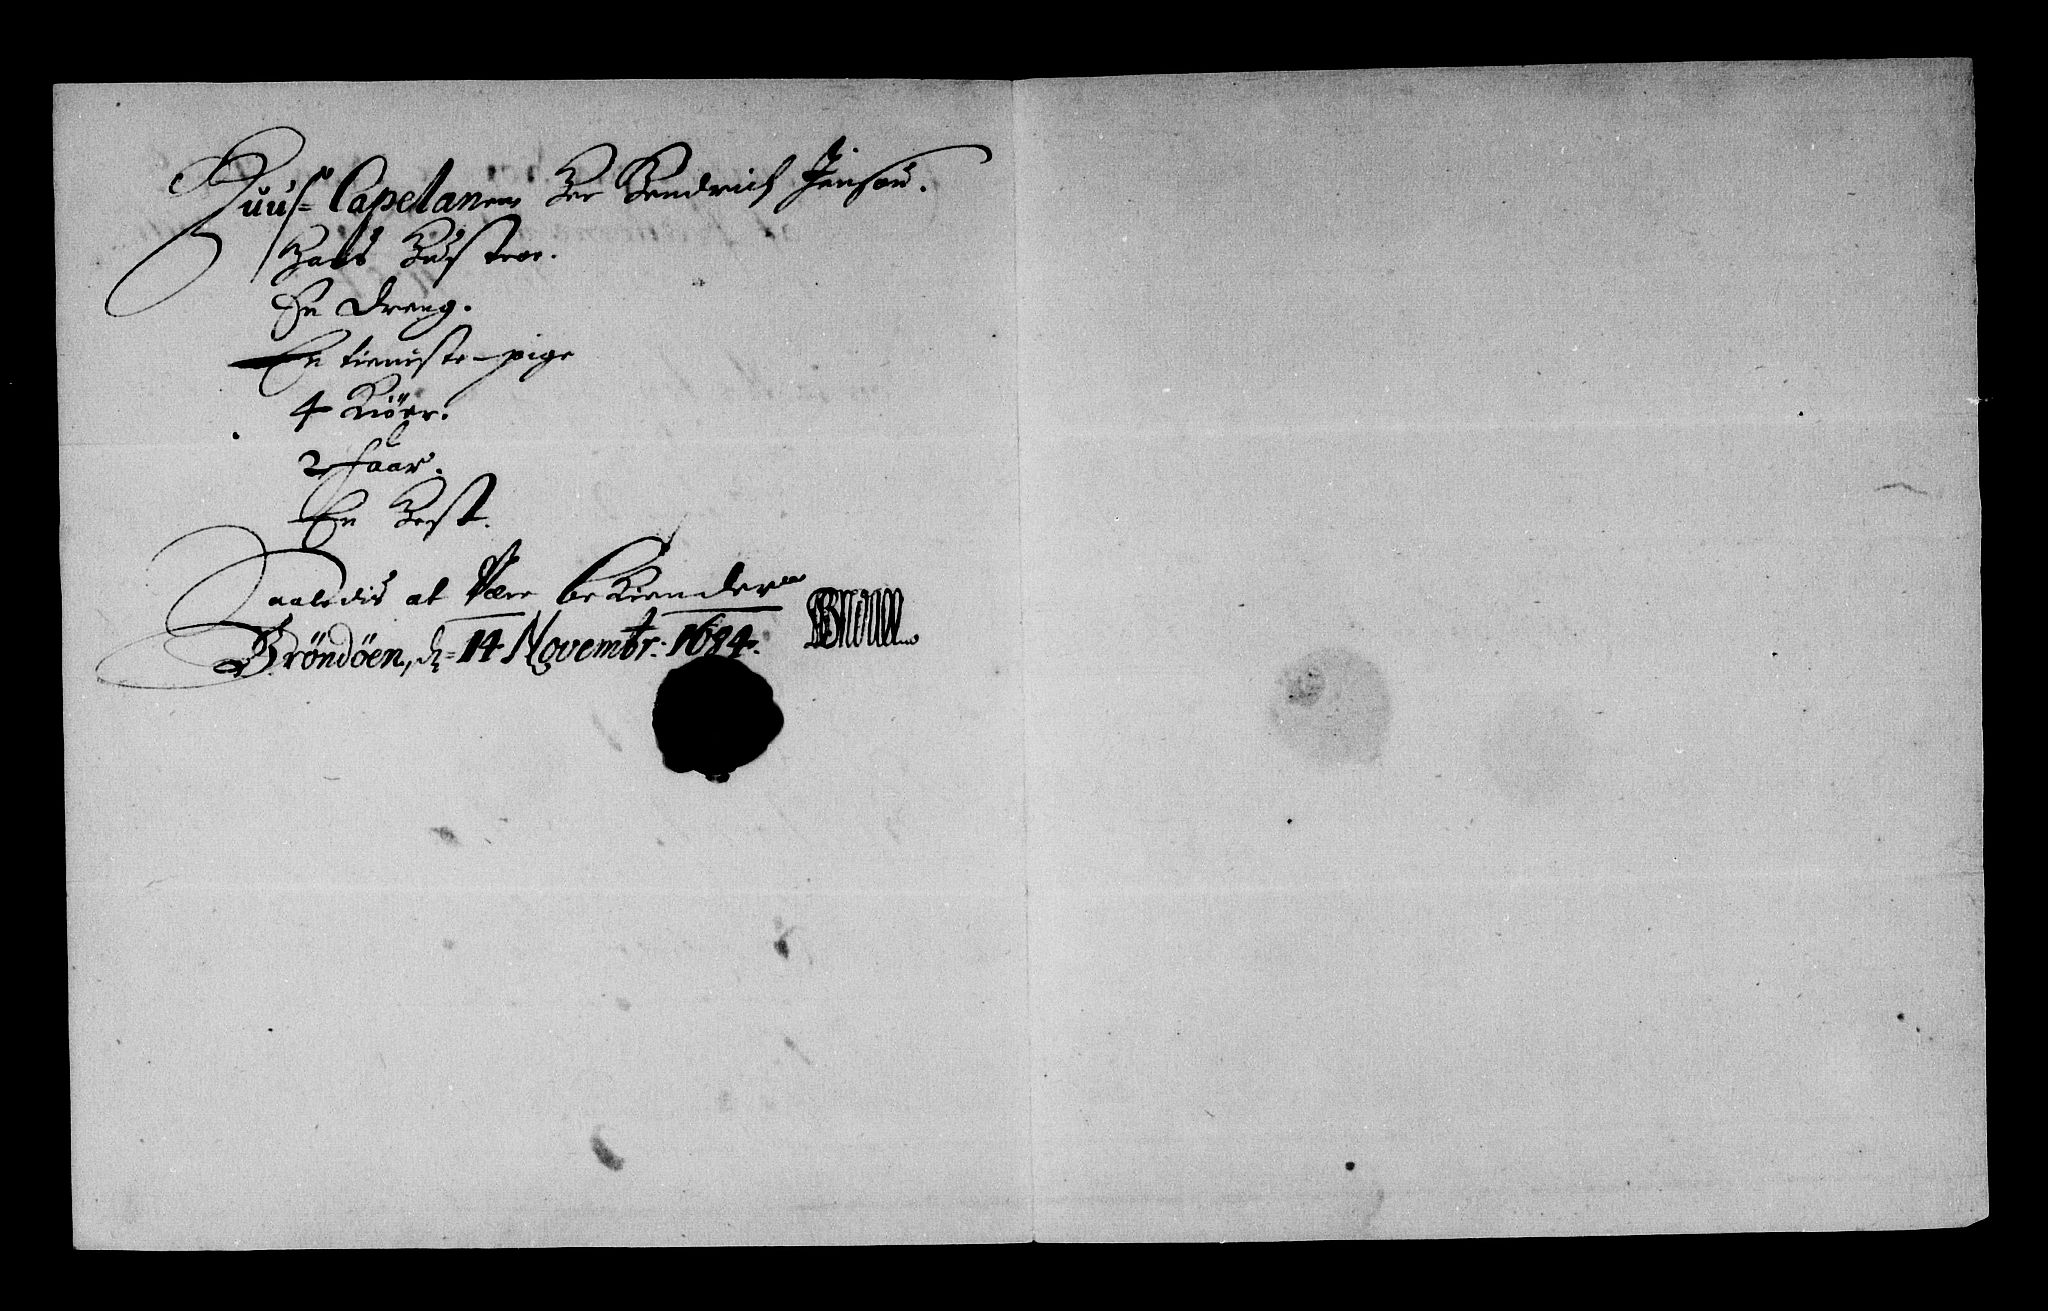 Huus Capelanen Her Hendrich Jensøn.
Hans Hustroe.
En dreng.
En tieniste-pige
4 Kiöer.
2 faar.
En Hest.
Saaledis at Være bekiender
Bröndöen, d: 14 Novembr: 1684.